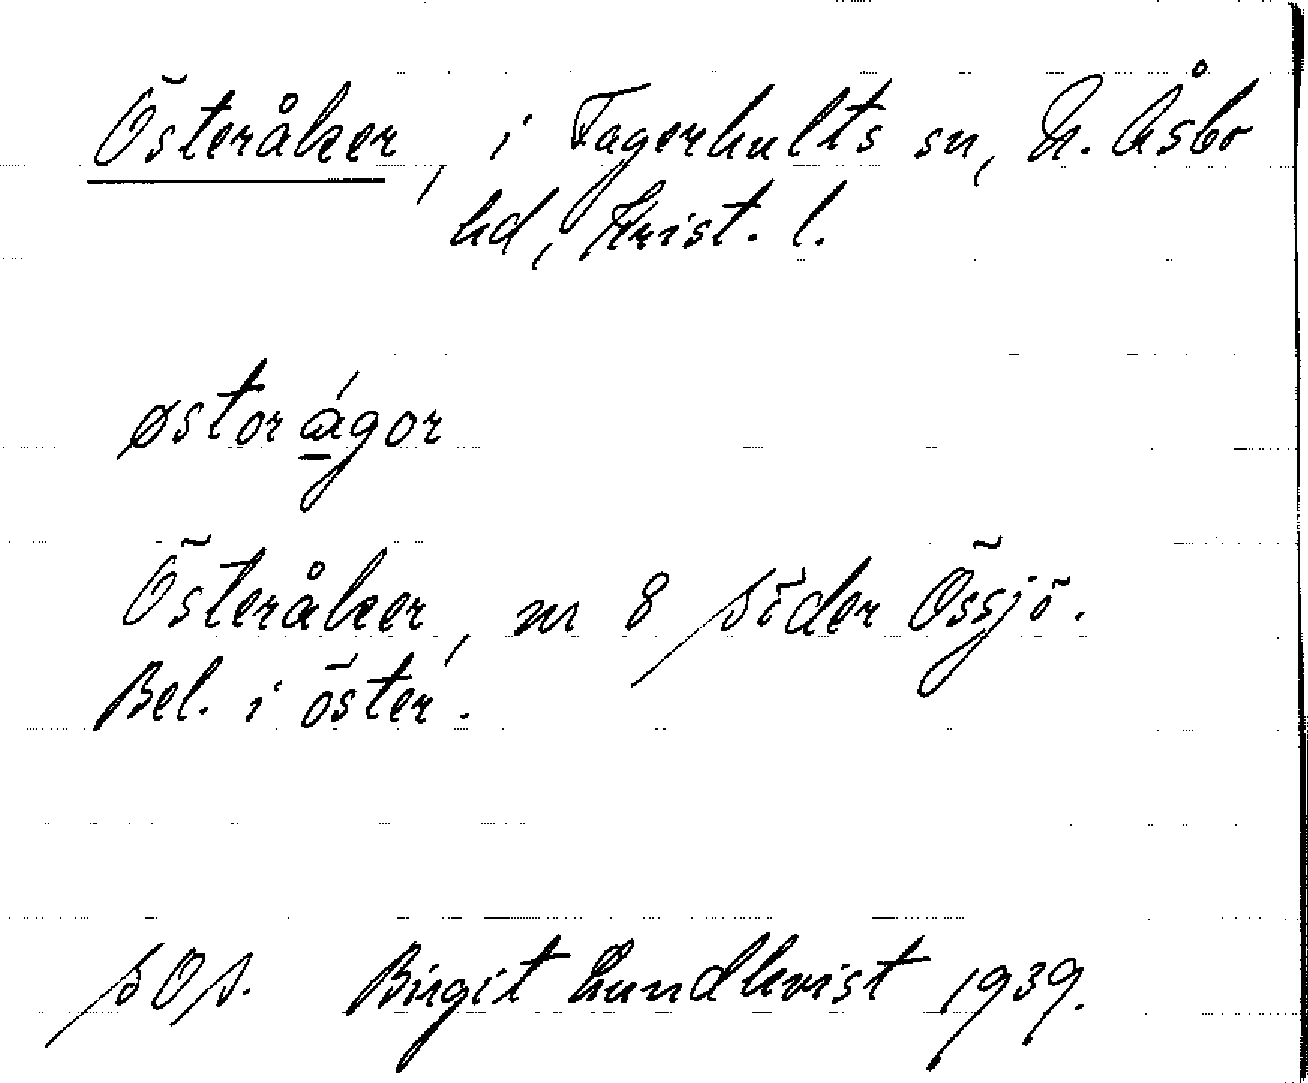 Österåker, i Fagerhults sn, N. Åsbo
hd, Krist. l.
østorågor
Österåker, nr 8 Söder Össjö.
Bel. i öster.
SOS. Birgit Lundkvist 1939.